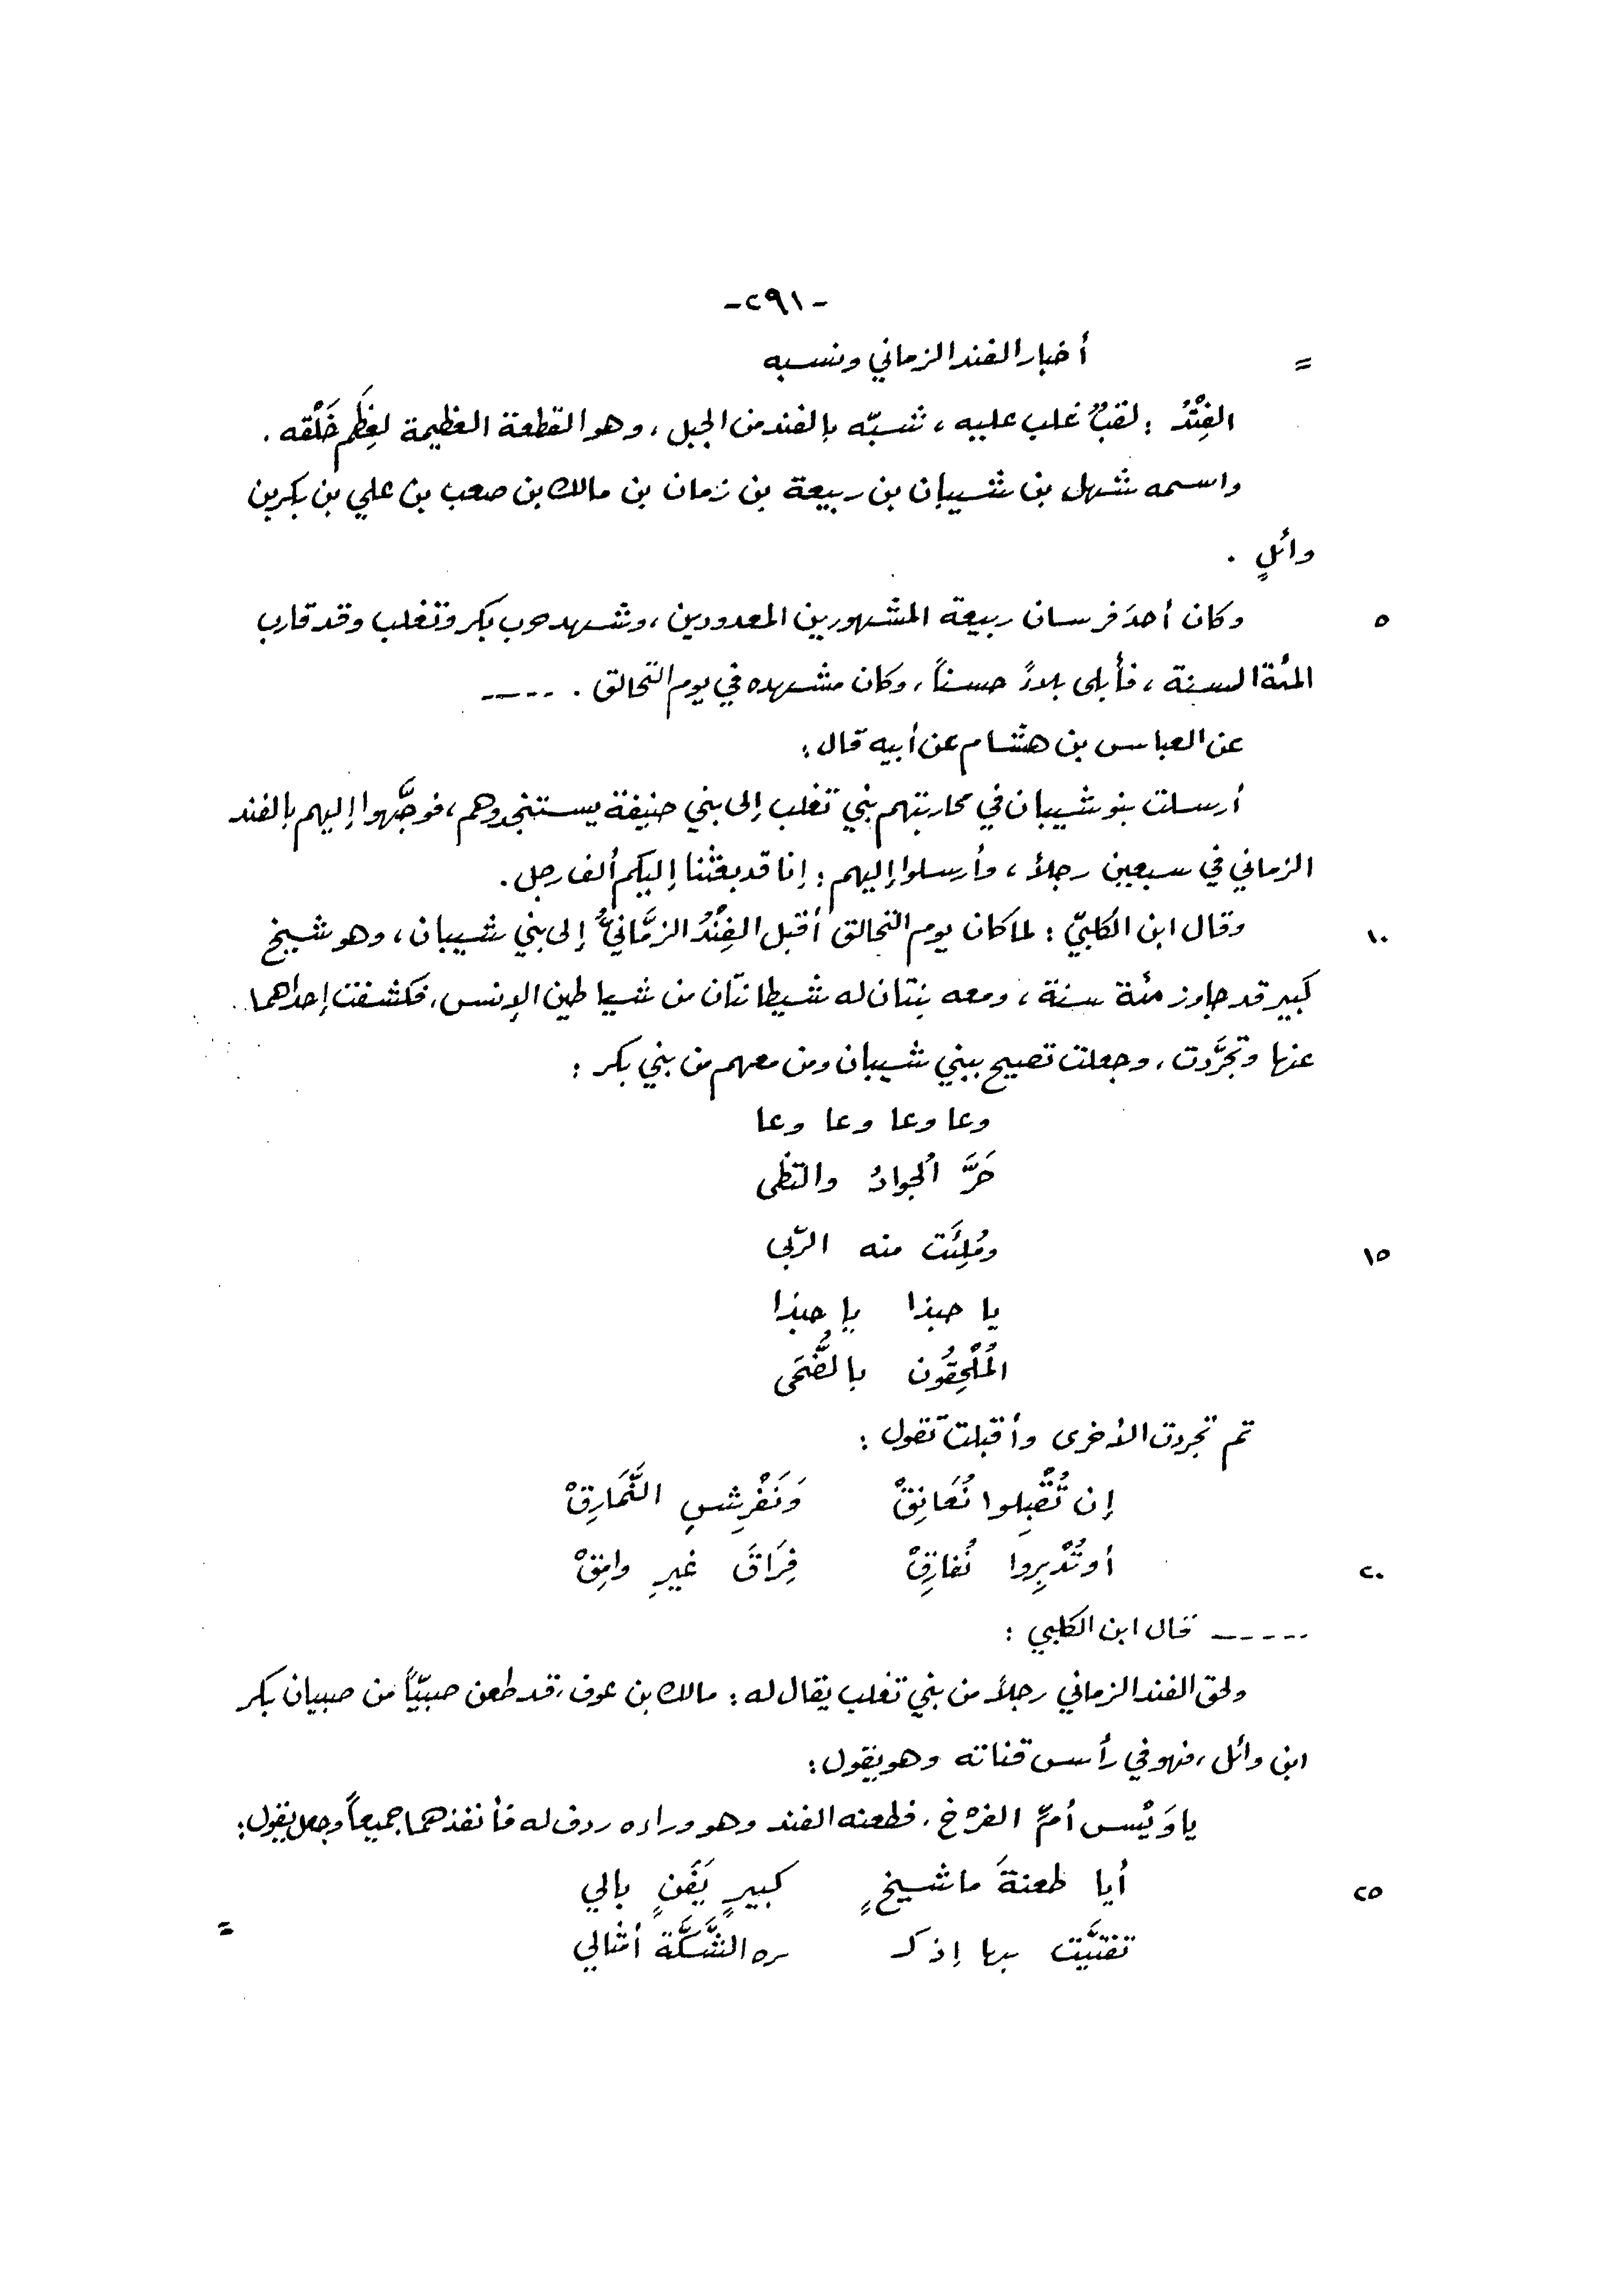 -٢٩١-
= أخبار الفند الزماني ونسبه
الفِنْدُ : لقبٌ غلب عليه ، شبّه بالفند من الجبل ، وهو القطعة العظيمة لِعِظَمِ خَلْقه .
واسمه شهل بن شيبان بن ربيعة بن زمان بن مالك بن صعب بن علي بن بكر بن
وائلٍ .
٥ وكان أحدَ فرسان ربيعة المشهورين المعدودين ، وشهد حرب بكر وتغلب وقد قارب
المئة السنة ، فأبلى بلاءً حسناً ، وكان مشهده في يوم التّحالق . -----
عن العباس بن هشام عن أبيه قال :
أرسلت بنو شيبان في محاربتهم بني تغلب إلى بني حنيفة يستنجدوهم ، فوجَّهوا إليهم بالفند
الزماني في سبعين رجلاً ، وأرسلوا إليهم : إنا قد بعثنا إليكم ألف رجل .
١٠ وقال ابن الكلبيّ : لما كان يوم التحالق أقبل الفِنْدُ الزمَّانيُّ إلى بني شيبان ، وهو شيخ
كبير قد جاوز مئة سنة ، ومعه بنتان له شيطانتان من شياطين الإنس ، فكشفت إحداهما
عنها وتجرَّدت ، وجعلت تصيح ببني شيبان ومن معهم من بني بكر :
وعا وعا وعا وعا
حَرَّ الجوادُ والتظى
١٥ ومُلِئَت منه الرّبى
يا حبذا يا حبذا
المُلْحِقُون بالضُّحَى
ثم تجردت الأخرى وأقبلت تقول :
إن تُقْبِلوا نُعَانِقْ وَنَفْرِشِ النَّمَارِقْ
٢٠ أو تُدْبِروا نُفارِقْ فِرَاقَ غيرِ وامِقْ
----- قال ابن الكلبي :
ولحق الفند الزماني رجلاً من بني تغلب يقال له : مالك بن عوف ، قد طعن صبيّاً من صبيان بكر
ابن وائل ، فهو في رأس قناته وهو يقول :
يا وَيْس أمِّ الفرْخ . فطعنه الفند وهو وراءه ردف له فأنفذهما جميعاً وجعل يقول :
٢٥ أيا طعنةَ ما شيخٍ كبيرٍ يَفَنٍ بالي
تفتيَّت بها إذ كـ ـره الشَّكَّةَ أمثالي
=